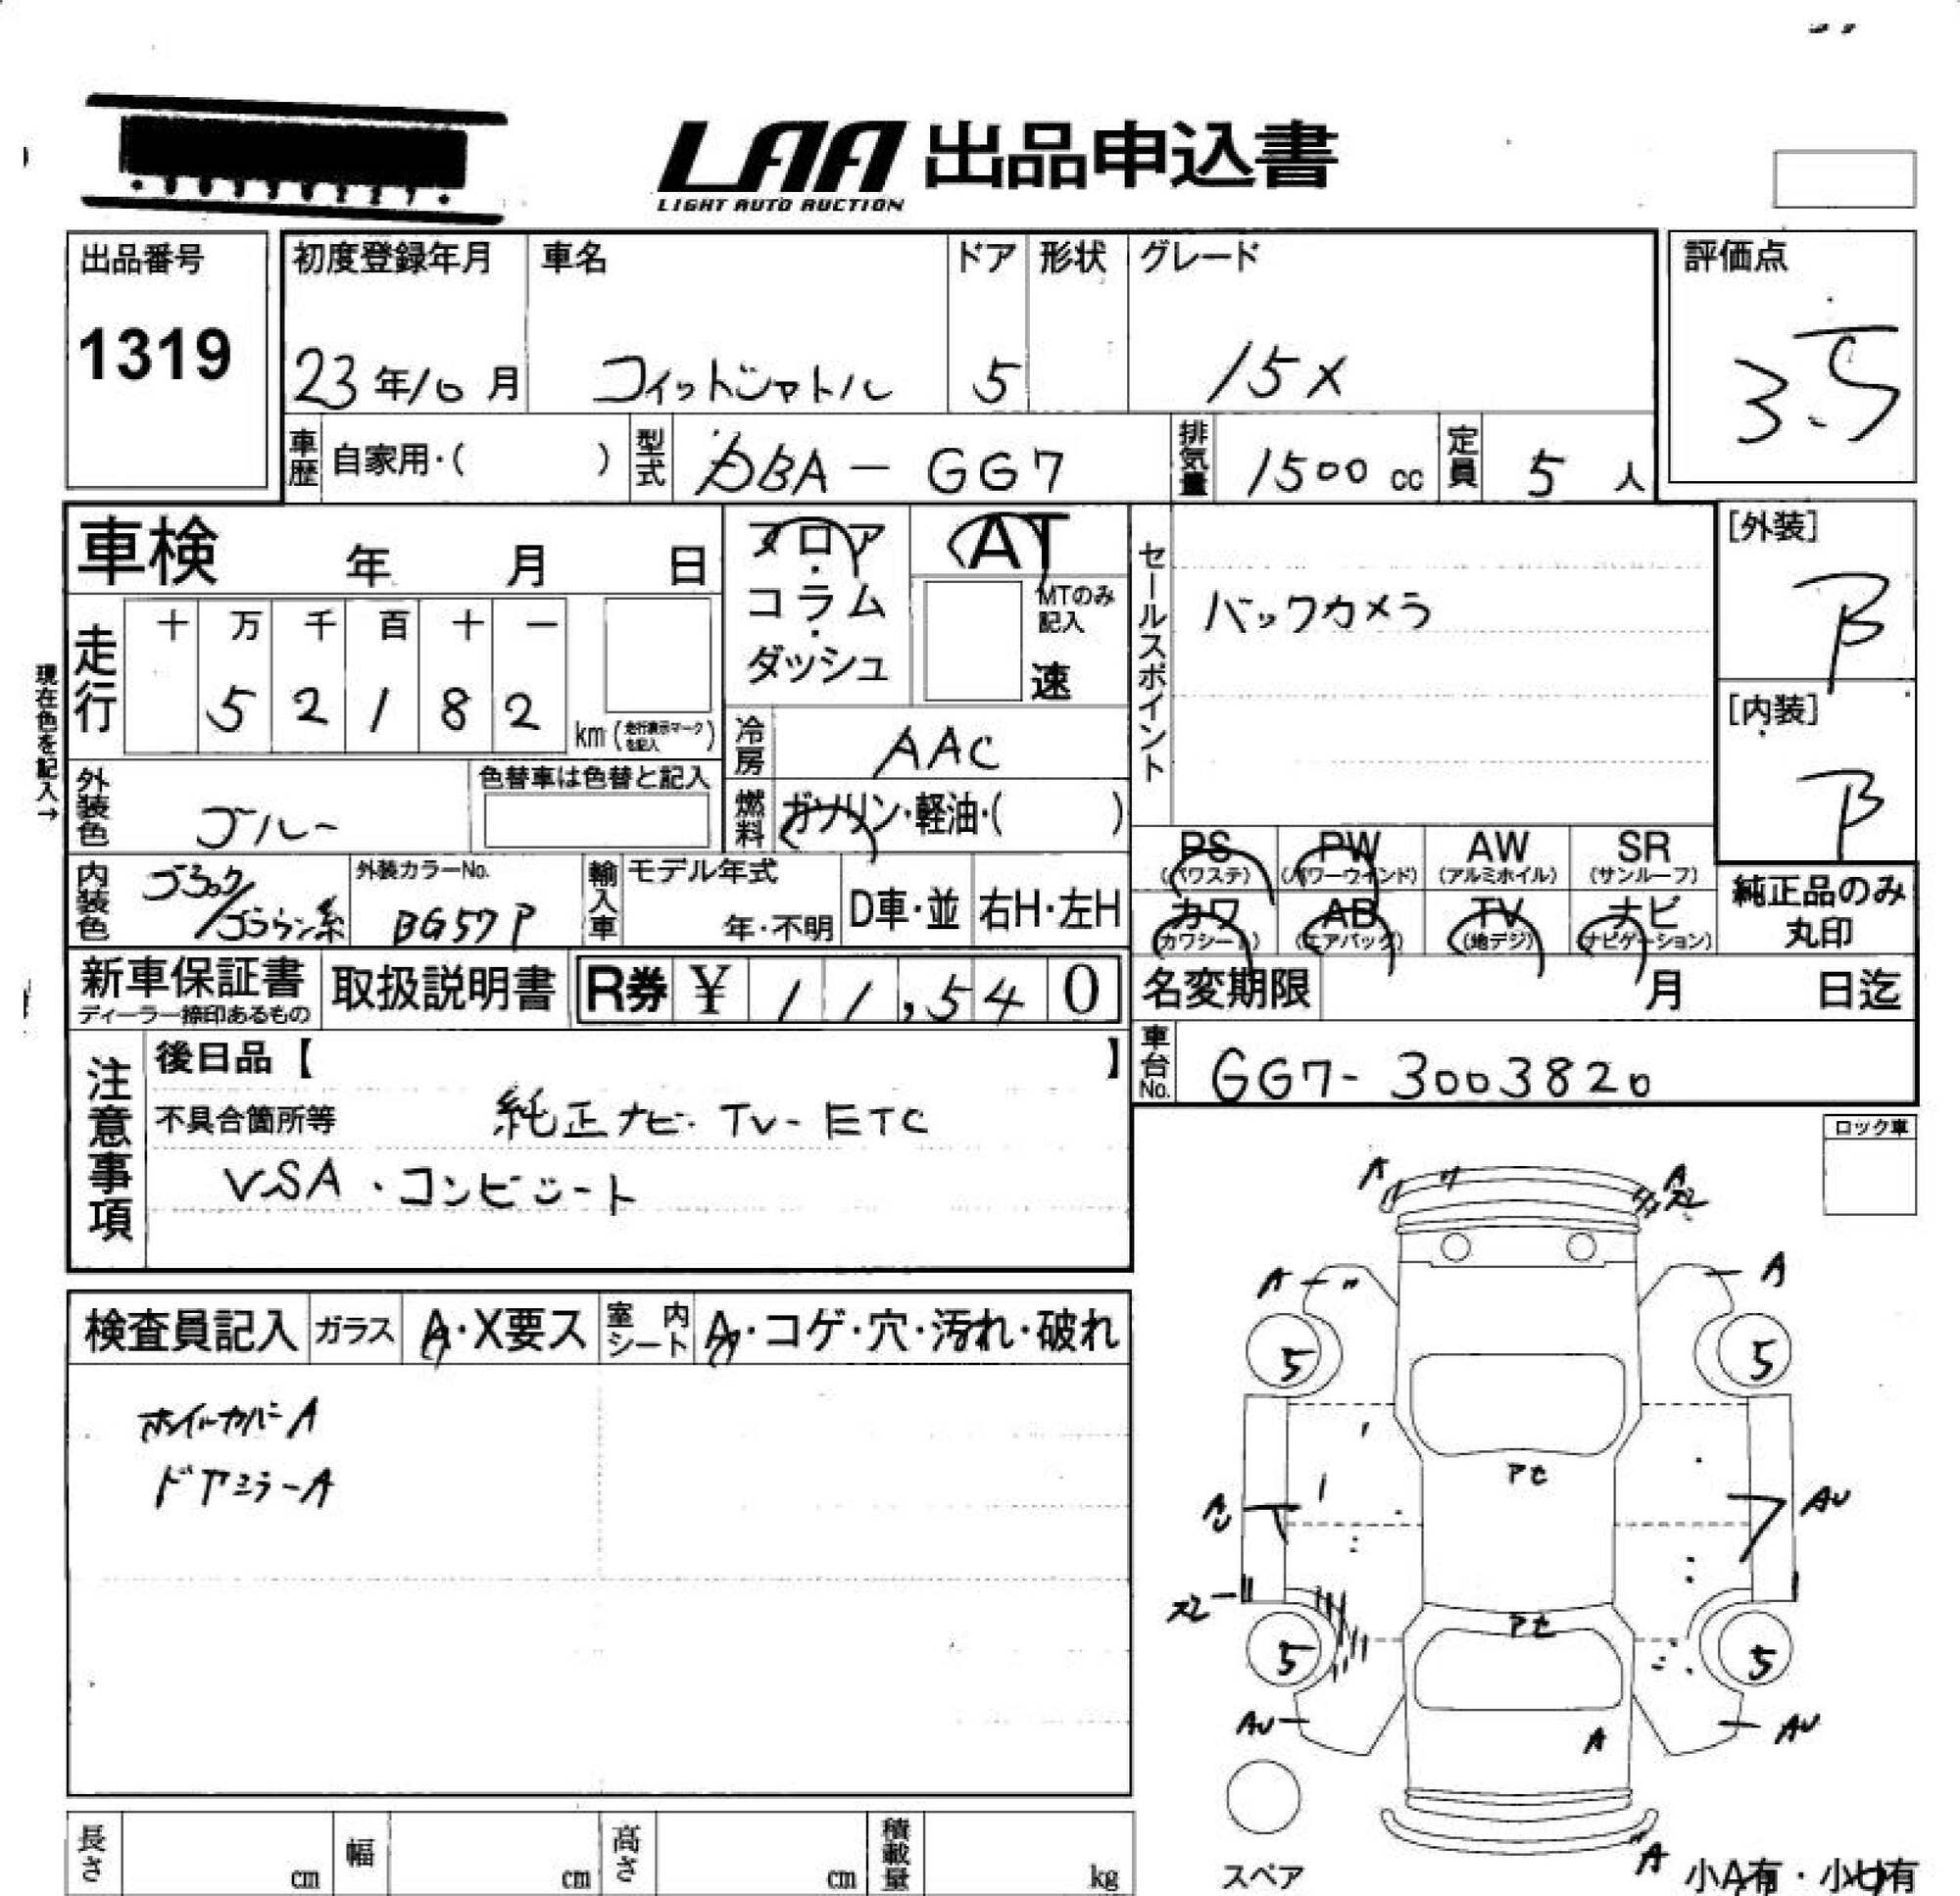 LAA 出品申込書
LIGHT AUTO AUCTION
出品番号
1319
初度登録年月
23年10月
車名
フィットシャトル
ドア
5
形状
グレード
15X
評価点
3.5
車歴 自家用・( )
型式 DBA-GG7
排気量 1500 cc
定員 5 人
車検 年 月 日
フロア・コラム・ダッシュ
AT
MTのみ記入
速
セールスポイント
バックカメラ
[外装]
B
[内装]
B
現在色を記入→
走行
十 万 千 百 十 一
5 2 1 8 2
km (走行表示マークを記入)
冷房 AAC
外装色 ブルー
色替車は色替と記入
燃料 ガソリン・軽油・( )
内装色 ブラック/ブラウン系
外装カラーNo.
BG57P
輸入車 モデル年式
年・不明
D車・並
右H・左H
PS (パワステ)
PW (パワーウインド)
AW (アルミホイル)
SR (サンルーフ)
カワ (カワシート)
AB (エアバック)
TV (地デジ)
ナビ (ナビゲーション)
純正品のみ丸印
新車保証書
ディーラー捺印あるもの
取扱説明書
R券 ¥ 11,540
名変期限 月 日迄
車台No. GG7-3003820
注意事項
後日品【 】
不具合箇所等
純正ナビ・TV・ETC
VSA・コンビシート
ロック車
検査員記入
ガラス A・X要ス
室内シート A・コゲ・穴・汚れ・破れ
ホイールカバーA
ドアミラーA
A
A
スレ
A
A
5
5
アセ
AU
AU
スレ
アセ
5
5
AU
AU
A
A
スペア
小A有・小U有
長さ cm
幅 cm
高さ cm
積載量 kg